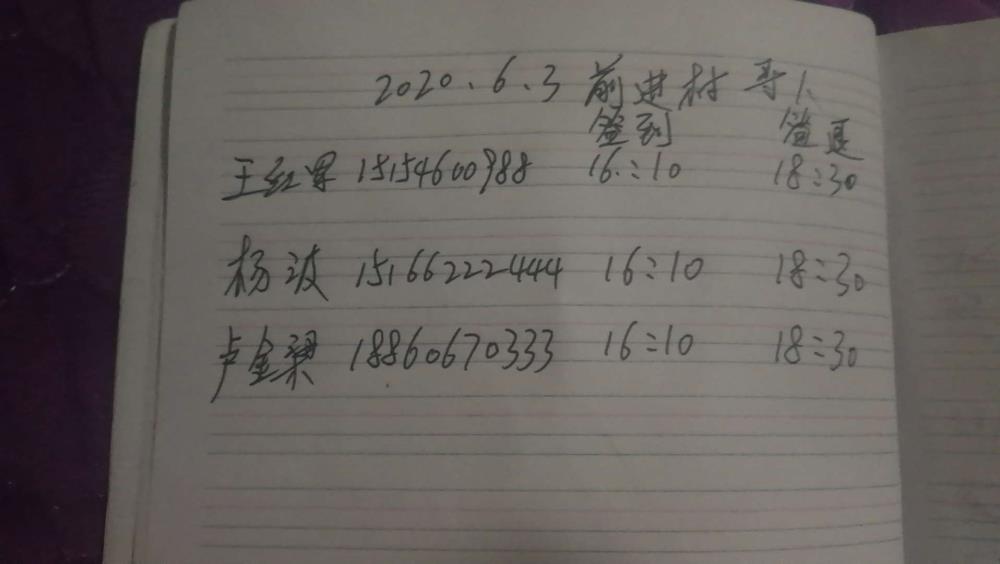 2020.6.3 前进村
签到 签退
王红军 15154600988 16:10 18:30
杨波 15166222444 16:10 18:30
卢金梁 18860670333 16:10 18:30